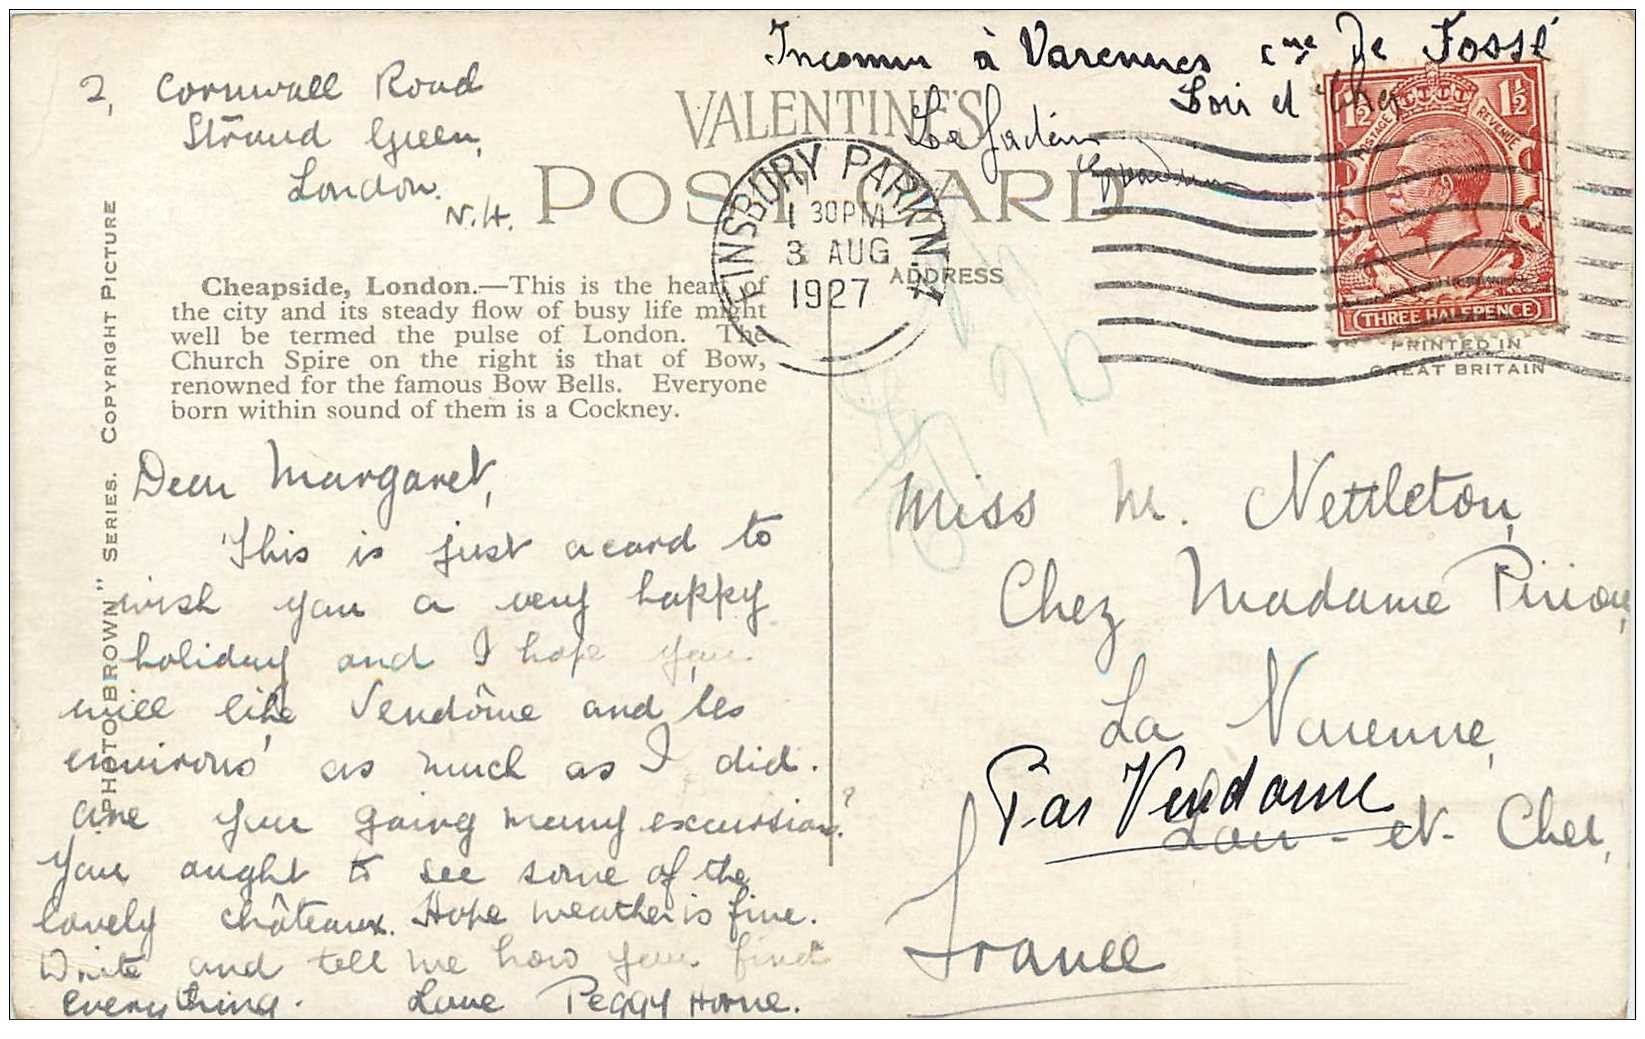 2, Cornwall Road
Stroud Green,
London.
N.4.
VALENTINE'S
POST CARD
ADDRESS
Inconnu à Varennes cne De Fossé
Loir et Cher
Le facteur
FINSBURY PARK N.4
1 30PM
3 AUG
1927
1½ 1½
POSTAGE REVENUE
THREE HALFPENCE
PRINTED IN
GREAT BRITAIN
"PHOTO BROWN" SERIES. COPYRIGHT PICTURE
Cheapside, London.—This is the heart of
the city and its steady flow of busy life might
well be termed the pulse of London. The
Church Spire on the right is that of Bow,
renowned for the famous Bow Bells. Everyone
born within sound of them is a Cockney.
Dear Margaret,
This is just a card to
wish you a very happy
holiday and I hope you
will like Vendôme and 'les
environs' as much as I did.
Are you going many excursions?
You ought to see some of the
lovely châteaux. Hope weather is fine.
Write and tell me how you find
everything. Love Peggy Horne.
Miss M. Nettleton,
Chez Madame
La Varenne,
Par Vendome
Loir-et-Cher,
France